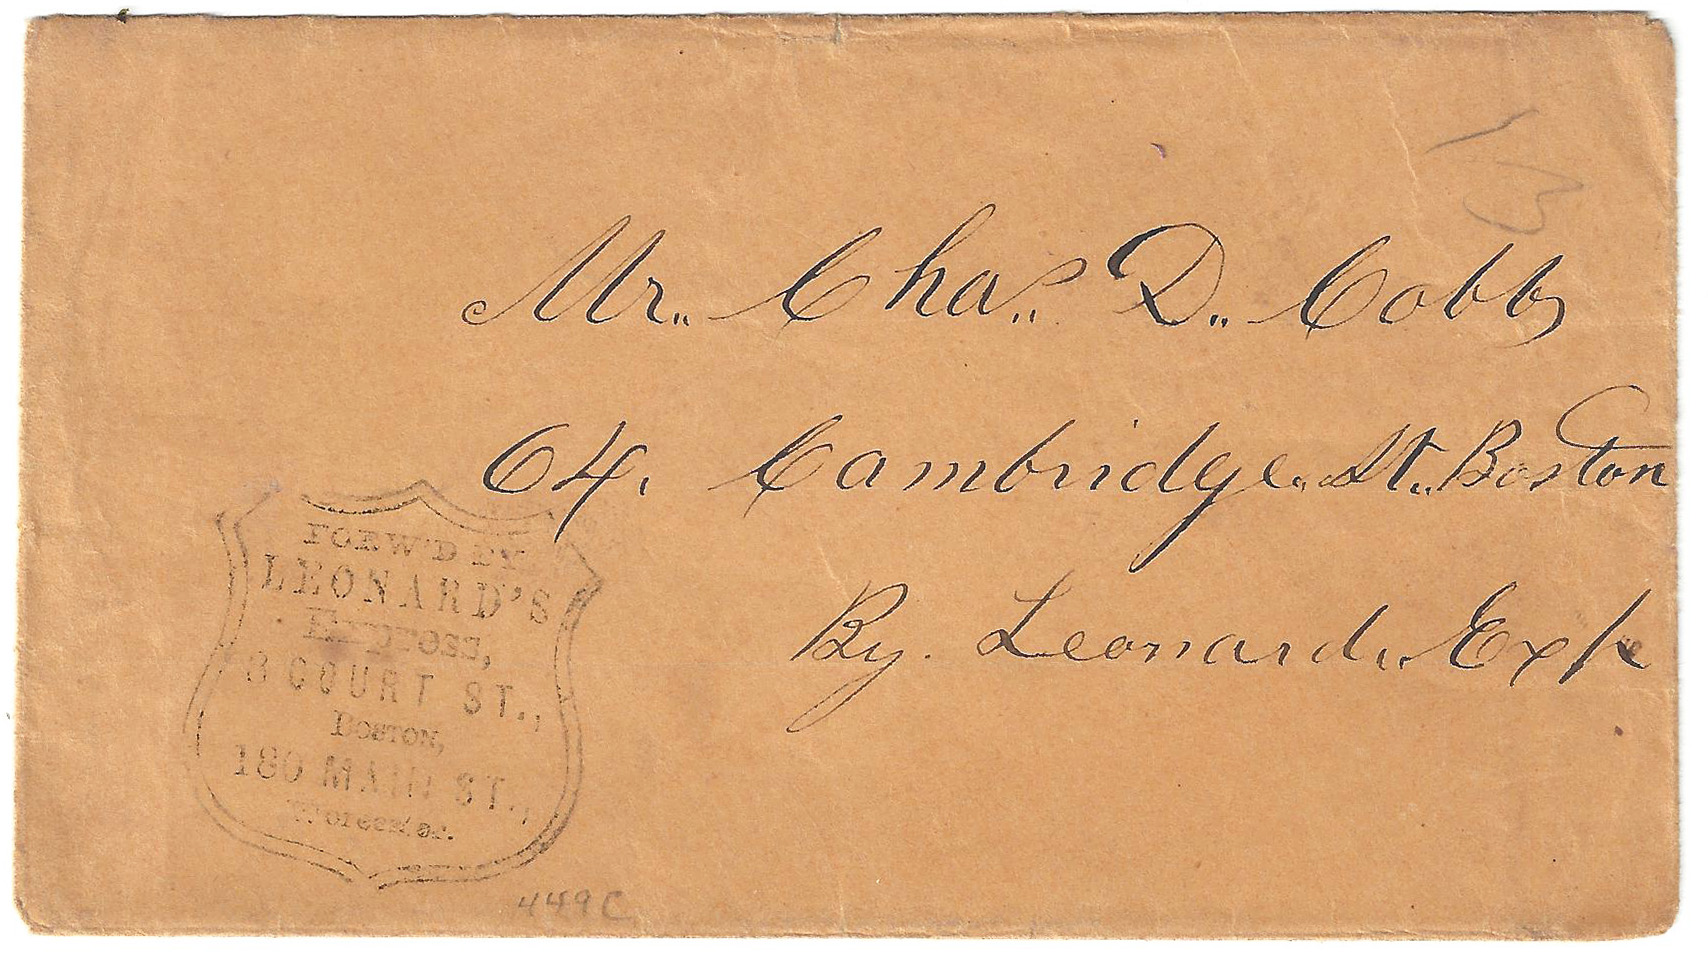 Mr. Chas. D. Cobb
64. Cambridge. St. Boston
By. Leonard. Exp
FORW'D BY
LEONARD'S
EXPRESS,
8 COURT ST.,
BOSTON,
180 MAIN ST.,
Worcester.
449C